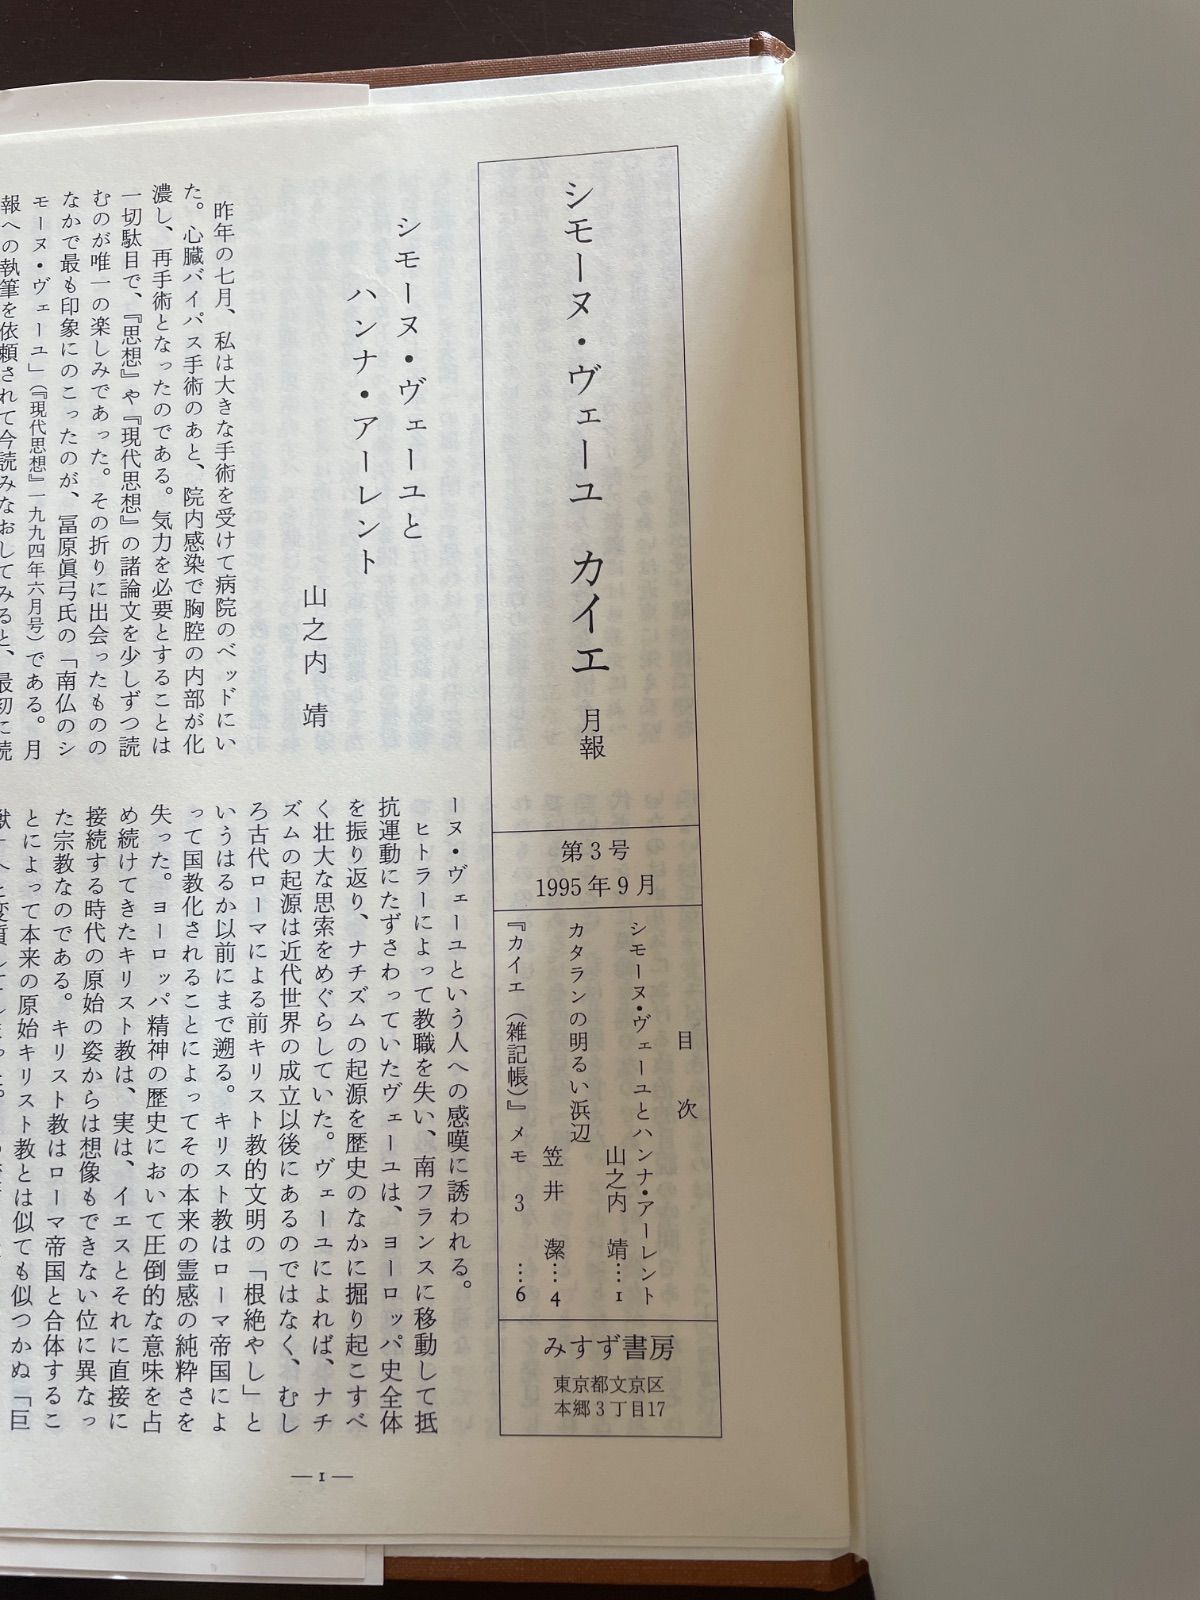 シモーヌ・ヴェーユ　カイエ　月報
第3号
1995年9月
目次
シモーヌ・ヴェーユとハンナ・アーレント
山之内　靖…1
カタランの明るい浜辺
笠井　潔…4
『カイエ（雑記帳）』メモ　3　…6
みすず書房
東京都文京区
本郷3丁目17
シモーヌ・ヴェーユと
ハンナ・アーレント
山之内　靖
昨年の七月、私は大きな手術を受けて病院のベッドにい
た。心臓バイパス手術のあと、院内感染で胸腔の内部が化
濃し、再手術となったのである。気力を必要とすることは
一切駄目で、『思想』や『現代思想』の諸論文を少しずつ読
むのが唯一の楽しみであった。その折りに出会ったものの
なかで最も印象にのこったのが、冨原眞弓氏の「南仏のシ
モーヌ・ヴェーユ」（『現代思想』一九九四年六月号）である。月
報への執筆を依頼されて今読みなおしてみると、最初に読
ーヌ・ヴェーユという人への感嘆に誘われる。
ヒトラーによって教職を失い、南フランスに移動して抵
抗運動にたずさわっていたヴェーユは、ヨーロッパ史全体
を振り返り、ナチズムの起源を歴史のなかに掘り起こすべ
く壮大な思索をめぐらしていた。ヴェーユによれば、ナチ
ズムの起源は近代世界の成立以後にあるのではなく、むし
ろ古代ローマによる前キリスト教的文明の「根絶やし」と
いうはるか以前にまで遡る。キリスト教はローマ帝国によ
って国教化されることによってその本来の霊感の純粋さを
失った。ヨーロッパ精神の歴史において圧倒的な意味を占
め続けてきたキリスト教は、実は、イエスとそれに直接に
接続する時代の原始の姿からは想像もできない位に異なっ
た宗教なのである。キリスト教はローマ帝国と合体するこ
とによって本来の原始キリスト教とは似ても似つかぬ「巨
― 1 ―